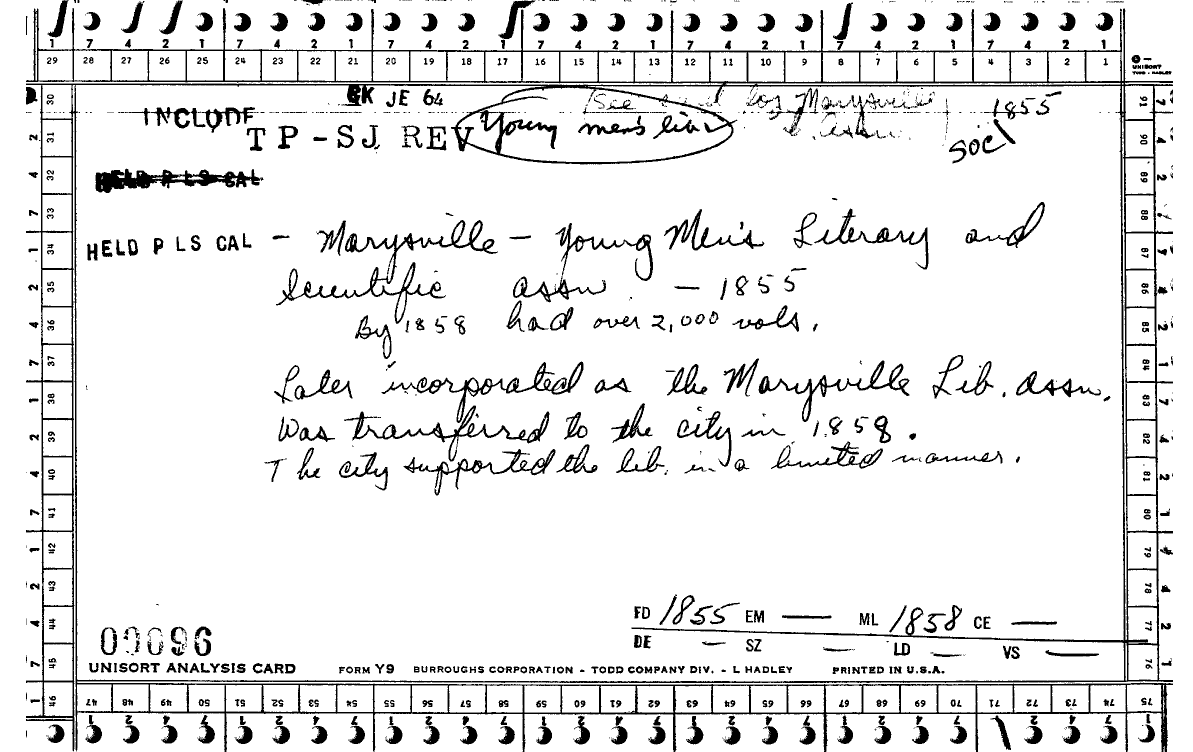 1 7 4 2 1 7 4 2 1 7 4 2 1 7 4 2 1 7 4 2 1 7 4 2 1 7 4 2 1
29 28 27 26 25 24 23 22 21 20 19 18 17 16 15 14 13 12 11 10 9 8 7 6 5 4 3 2 1
UNISORT
TODD - HADLEY
EK JE 64
INCLUDE
See Marysville
1855
TP-SJ REV
Young men's libr
Assn.
SOCL
HELD P LS CAL
HELD P LS CAL - Marysville - Young Men's Literary and
Scientific Assn - 1855
By 1858 had over 2,000 vols.
Later incorporated as the Marysville Lib. Assn.
Was transferred to the city in 1858.
The city supported the lib. in a limited manner.
FD 1855 EM — ML 1858 CE —
DE — SZ — LD — VS —
00096
UNISORT ANALYSIS CARD FORM Y9 BURROUGHS CORPORATION - TODD COMPANY DIV. - L HADLEY PRINTED IN U.S.A.
30 31 32 33 34 35 36 37 38 39 40 41 42 43 44 45 46
91 90 89 88 87 86 85 84 83 82 81 80 79 78 77 76
47 48 49 50 51 52 53 54 55 56 57 58 59 60 61 62 63 64 65 66 67 68 69 70 71 72 73 74 75